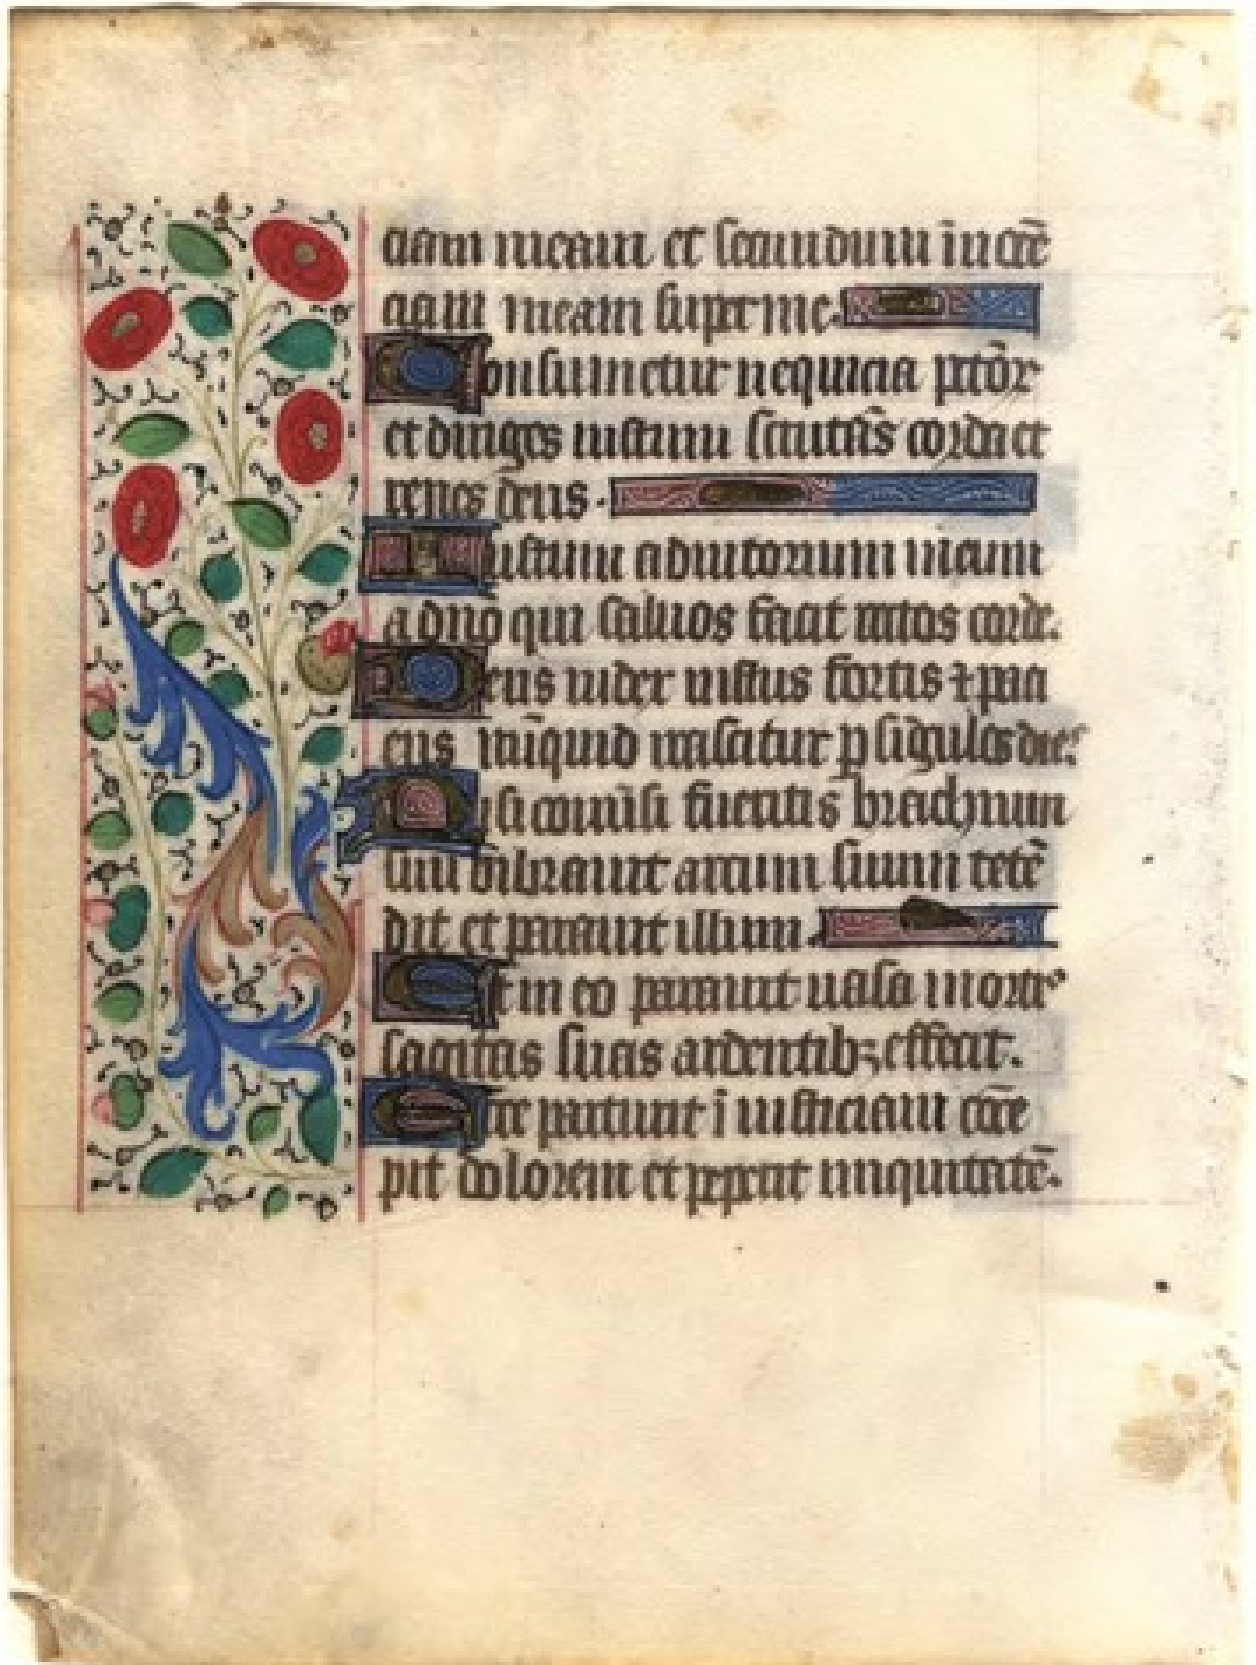 ciam meam et secundum īnocē
ciam meam super me.
Consumetur nequicia pctōr
et diriges iustum scrutās corda et
renes deus.
Iustum adiutorium meum
a dno qui saluos facit rectos corde.
Deus iudex iustus fortis ⁊ paci
ens nūquid irascitur p sīgulos dies
Nisi conūsi fueritis gladium
suū vibrauit arcum suum tetē
dit et parauit illum.
Et in eo parauit uasa mortis
sagitas suas ardentibꝫ effecit.
Ecce parturit ī iusticiam cōce
pit dolorem et peperit iniquitatē.